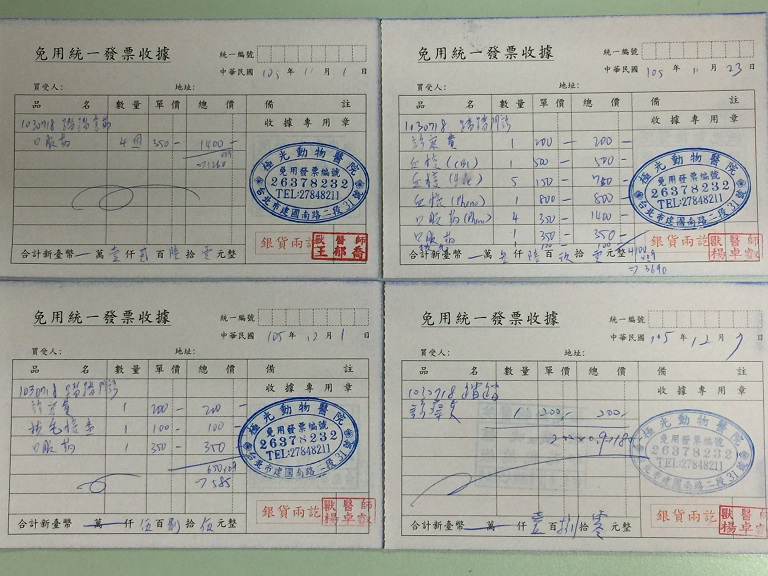 免用統一發票收據
統一編號
中華民國 105 年 11 月 1 日
買受人: 地址:
品 名 數量 單價 總價 備 註
1030718 收據專用章
口服藥 4 350- 1400-
極光動物醫院
免用發票編號
26378232
TEL:27848211
台北市建國南路二段31號
1260
銀貨兩訖
獸醫師
王郁喬
合計新臺幣 萬 壹 仟 貳 百 陸 拾 零 元整
免用統一發票收據
統一編號
中華民國 105 年 11 月 23 日
買受人: 地址:
品 名 數量 單價 總價 備 註
1030718 門診 收據專用章
診察費 1 200- 200-
血檢(CBC) 1 500- 500-
血檢(生化) 5 150- 750-
血檢(Pheno) 1 800- 800-
口服藥(Pheno) 4 350- 1400-
口服藥 1 350- 350-
極光動物醫院
免用發票編號
26378232
TEL:27848211
台北市建國南路二段31號
4100
→3690
銀貨兩訖
獸醫師
楊卓叡
合計新臺幣 萬 參 仟 陸 百 玖 拾 零 元整
免用統一發票收據
統一編號
中華民國 105 年 12 月 1 日
買受人: 地址:
品 名 數量 單價 總價 備 註
1030718 門診 收據專用章
診察費 1 200- 200-
1 100- 100-
口服藥 1 350- 350-
極光動物醫院
免用發票編號
26378232
TEL:27848211
台北市建國南路二段31號
→585
銀貨兩訖
獸醫師
楊卓叡
合計新臺幣 萬 仟 伍 百 捌 拾 伍 元整
免用統一發票收據
統一編號
中華民國 105 年 12 月 7 日
買受人: 地址:
品 名 數量 單價 總價 備 註
1030718 收據專用章
診察費 1 200- 200-
200×0.9=180
極光動物醫院
免用發票編號
26378232
TEL:27848211
台北市建國南路二段31號
銀貨兩訖
獸醫師
楊卓叡
合計新臺幣 萬 仟 壹 百 捌 拾 零 元整